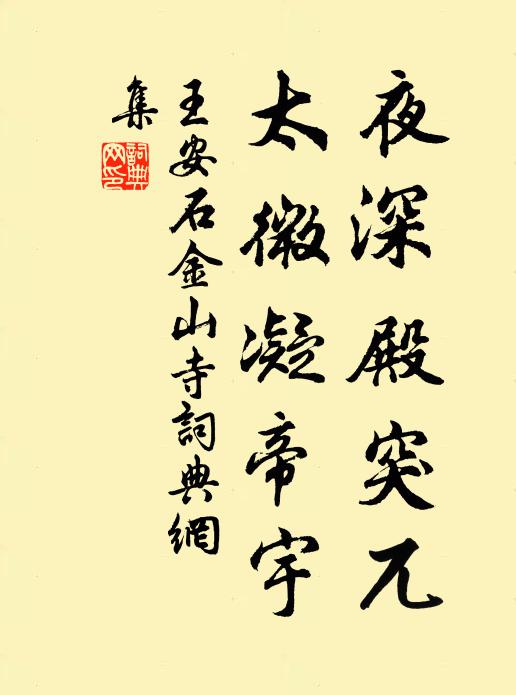 夜深殿突兀
太微凝帝宇
王安石金山寺詞典網
集
詞典
网印